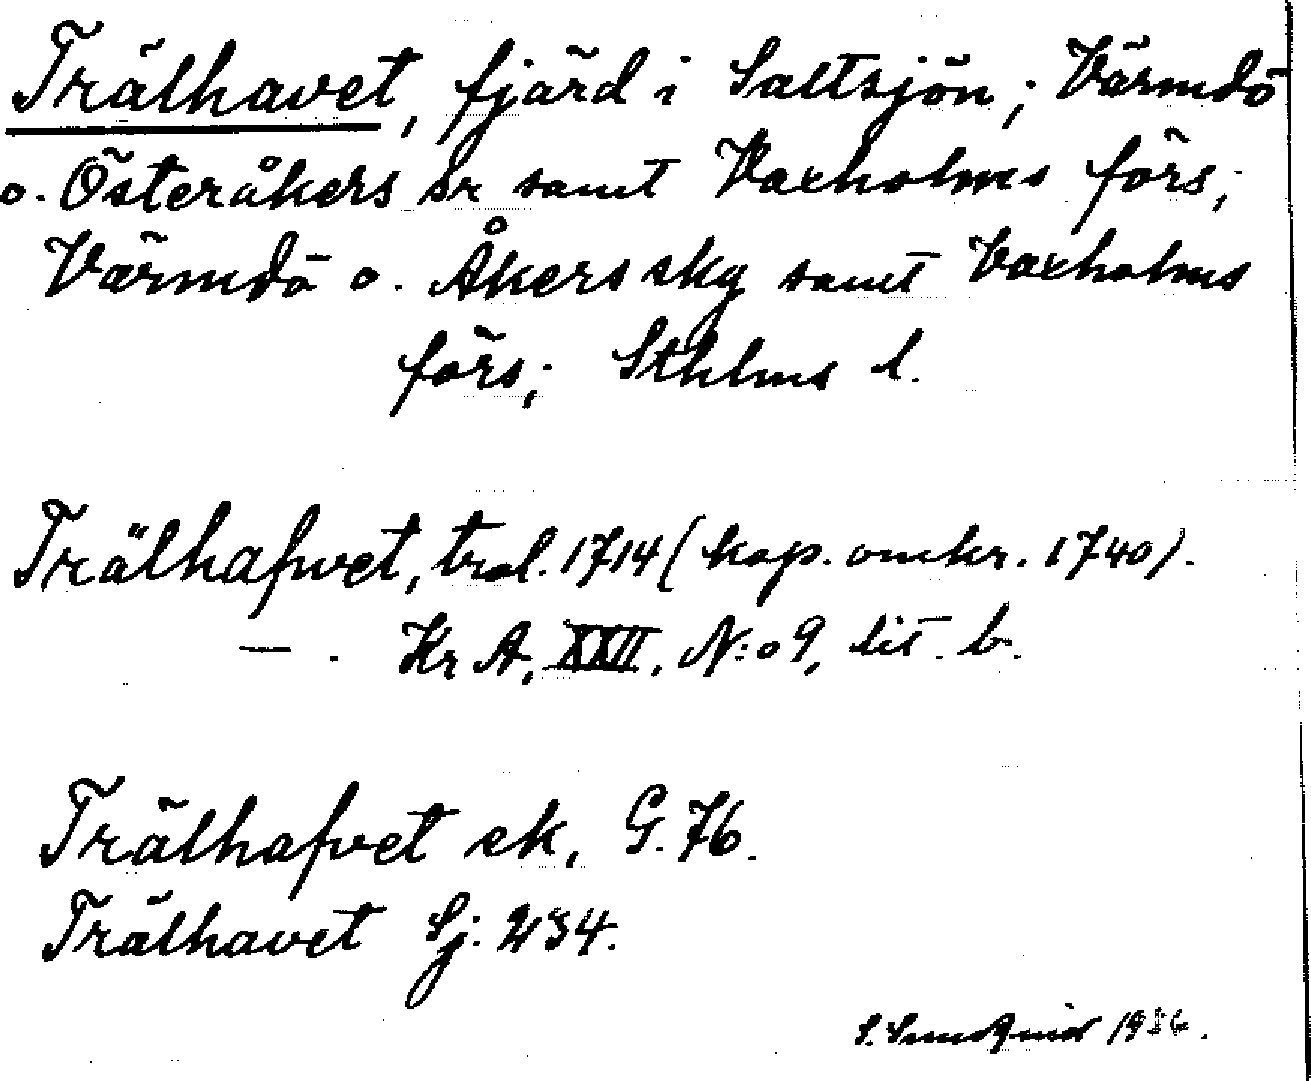 Trälhavet, fjärd i Saltsjön; Värmdö
o. Österåkers snr samt Vaxholms förs;
Värmdö o. Åkers skg samt Vaxholms
förs; Sthlms l.
Trälhafwet, trol. 1714 (kop. omkr. 1740).
— . Kr A, XXII, N:o 9, lit. b.
Trälhafvet ek, G. 76.
Trälhavet Sj. 234.
S. Sundqvist 1936.